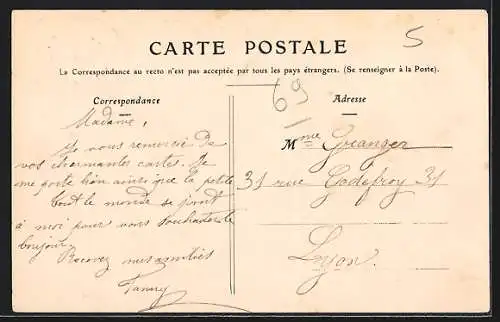 CARTE POSTALE
5
La Correspondance au recto n'est pas acceptée par tous les pays étrangers. (Se renseigner à la Poste).
69
Correspondance
Adresse
Madame,
Je vous remercie de
vos charmantes cartes. Je
me porte bien ainsi que la petite
tout le monde se joint
à moi pour vous souhaiter le
bonjour,
Recevez mes amitiés
Fanny
Mme Granger
31 rue Godefroy 31
Lyon.